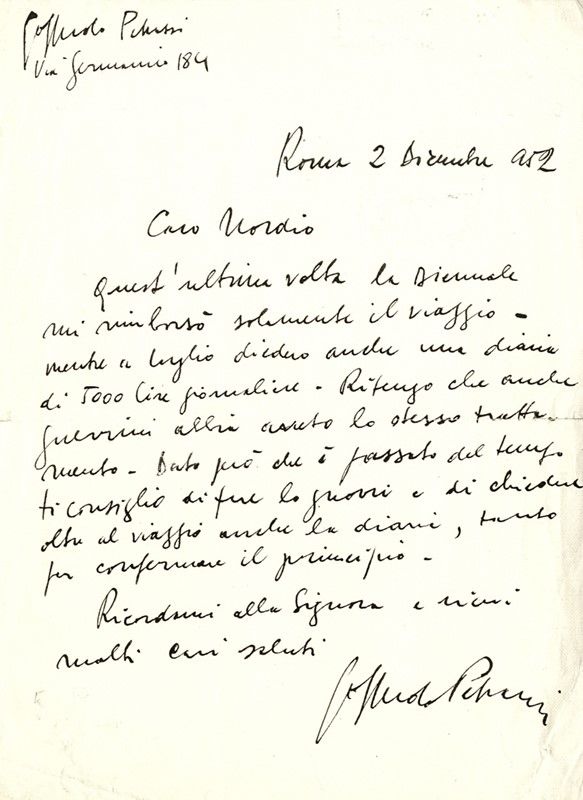 Goffredo Petrassi
Via Germanico 184
Roma 2 Dicembre 952
Caro Nordio
Quest'ultima volta la Biennale
mi rimborsò solamente il viaggio -
mentre a luglio diedero anche una diaria
di 5000 lire giornaliere - Ritengo che anche
Guerrini abbia avuto lo stesso tratta-
mento - Dato però che è passato del tempo
ti consiglio di fare lo gnorri e di chiedere
oltre al viaggio anche la diaria, tanto
per confermare il principio -
Ricordami alla Signora e ricevi
molti cari saluti
Goffredo Petrassi